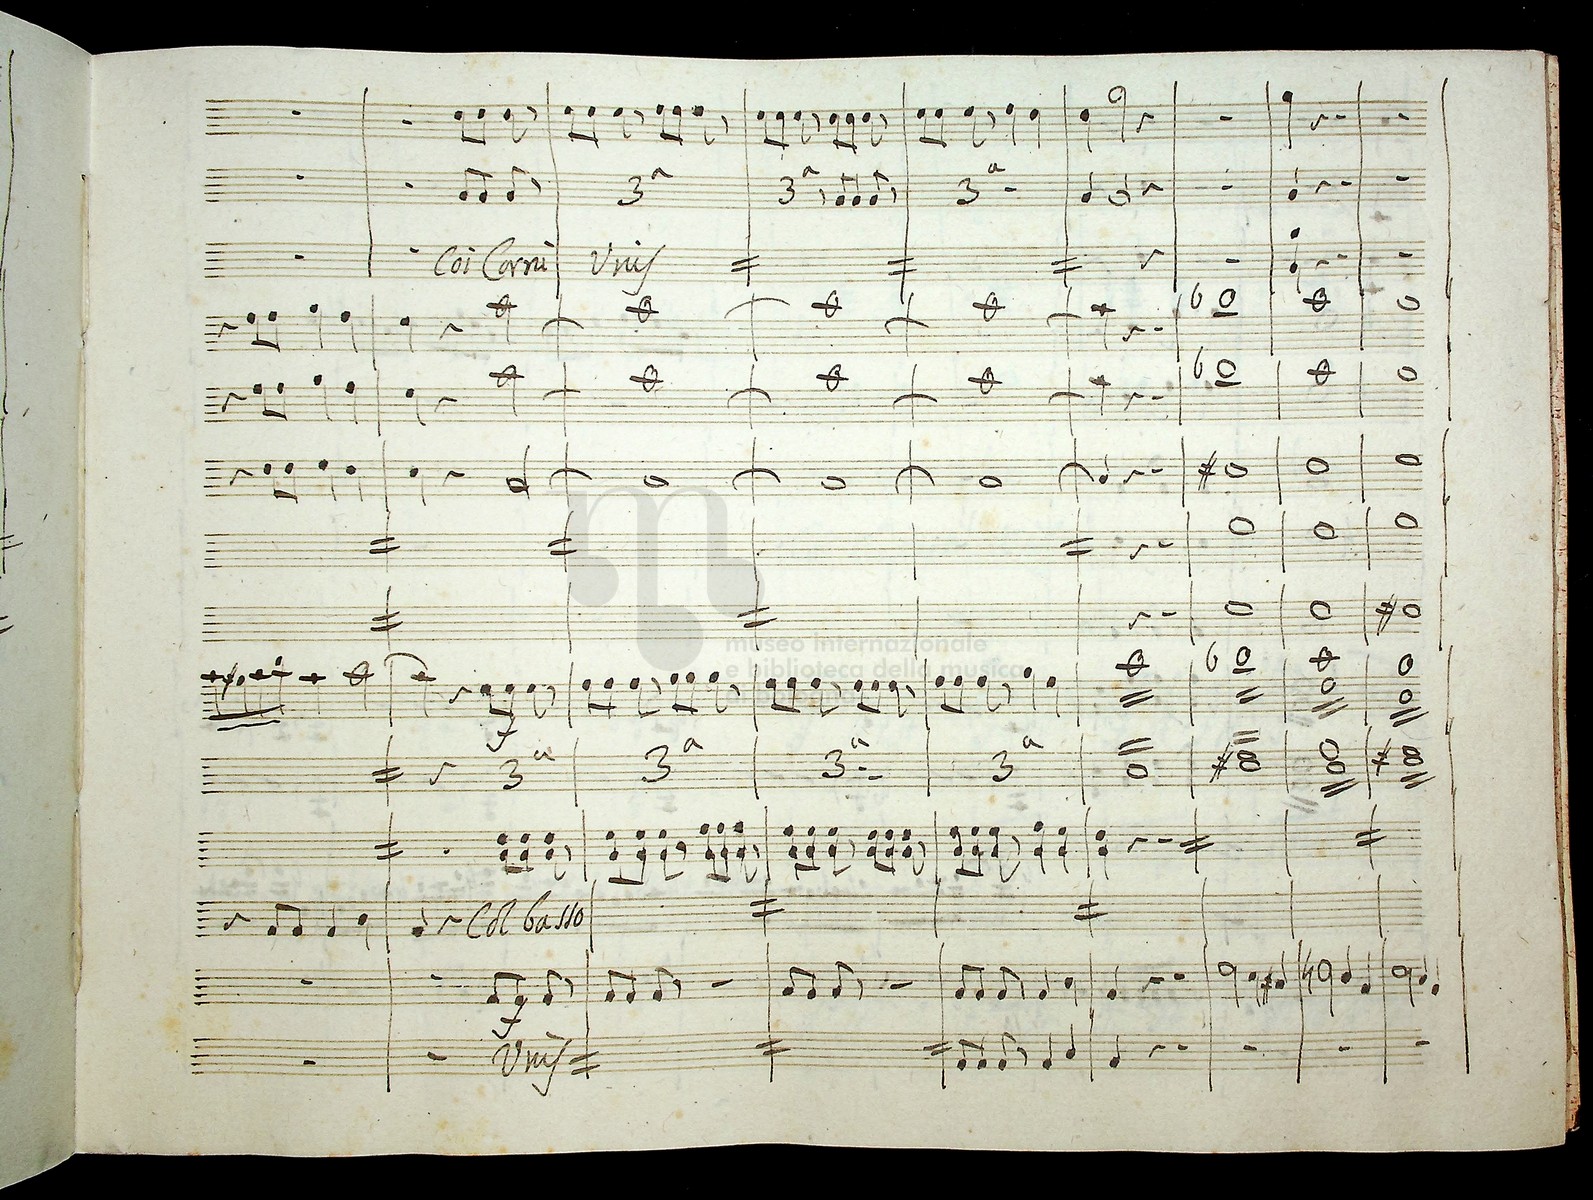 3ª 3ª 3ª
Coi Corni Unis
museo internazionale
e biblioteca della musica
f
3ª 3ª 3ª 3ª
Col basso
f
Unis